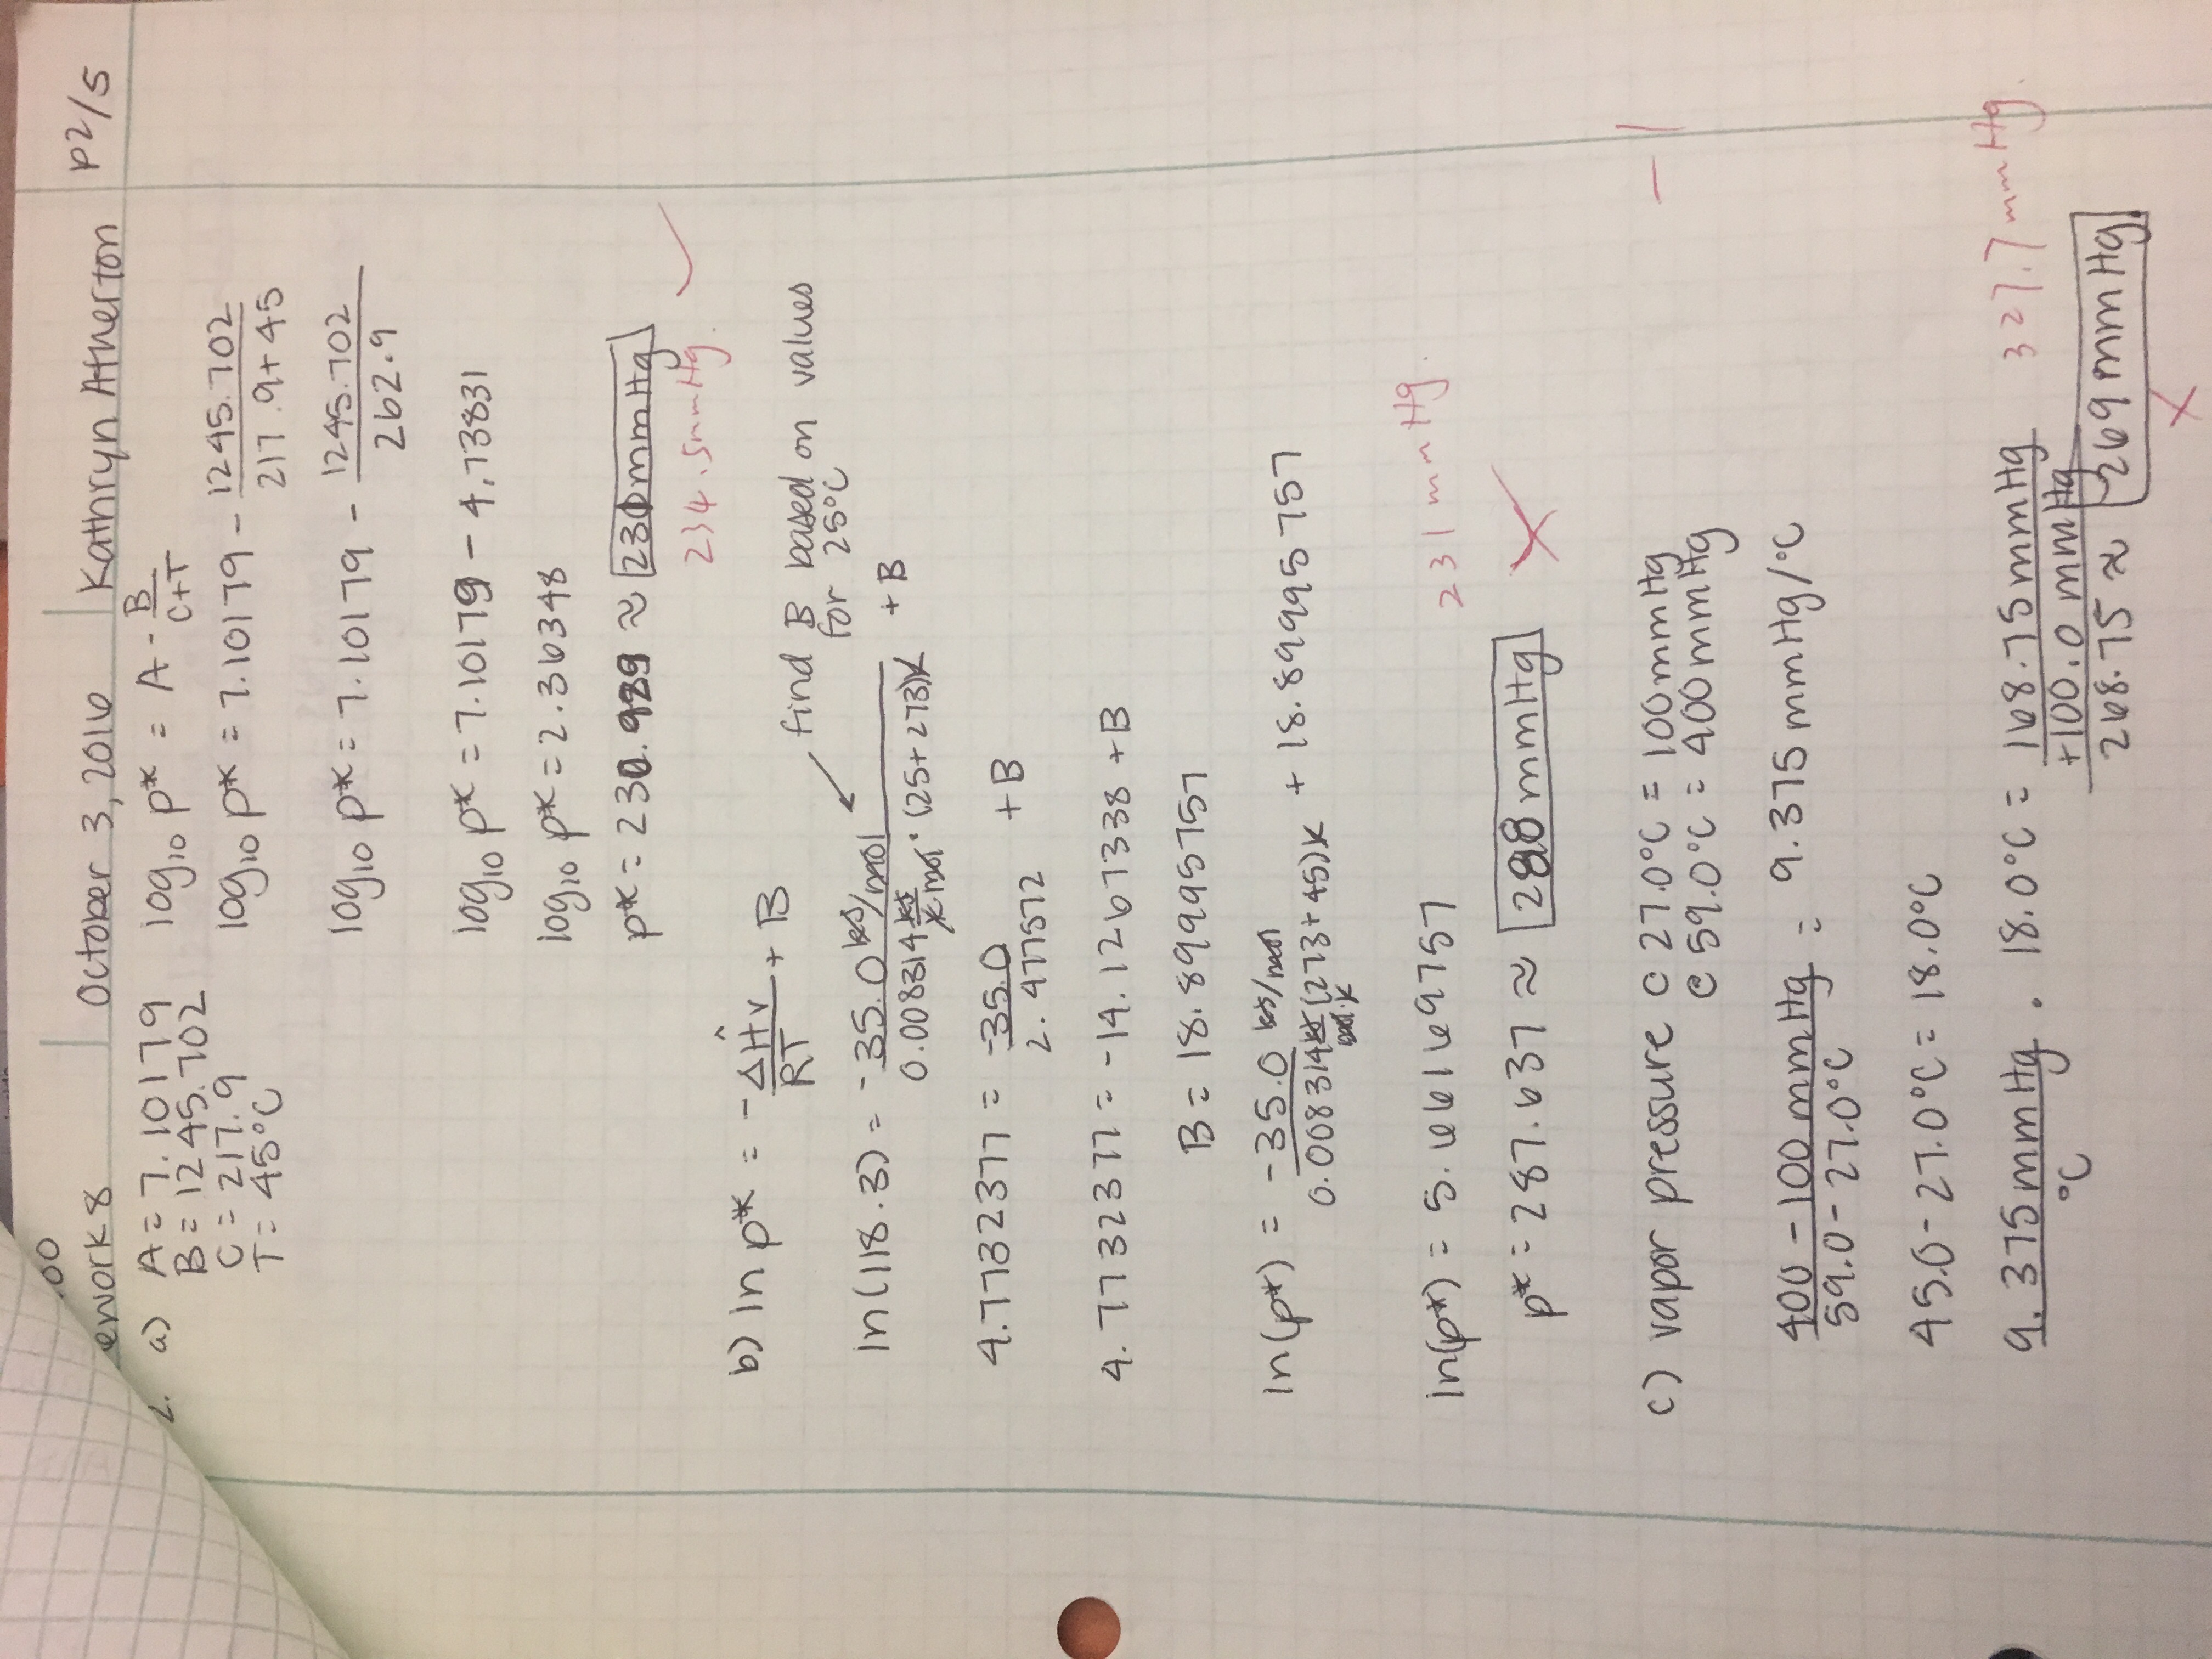 .00
ework 8 October 3, 2016 Kathryn Atherton P2/5
2. a) A = 7.10179 log₁₀ p* = A - B/(C+T)
B = 1245.702
C = 217.9 log₁₀ p* = 7.10179 - 1245.702/(217.9+45)
T = 45°C
log₁₀ p* = 7.10179 - 1245.702/262.9
log₁₀ p* = 7.10179 - 4.73831
log₁₀ p* = 2.36348
p* = 230.929 ≈ 231 mmHg
234.5mmHg. ✓
b) ln p* = -ΔĤv/RT + B
find B based on values
for 25°C
ln(118.3) = -35.0 kJ/mol / 0.008314 kJ/K·mol · (25+273)K + B
4.7732377 = -35.0/2.477572 + B
4.7732377 = -14.1267338 + B
B = 18.89995757
ln(p*) = -35.0 kJ/mol / 0.008314 kJ/mol·K (273+45)K + 18.89995757
ln(p*) = 5.66169757 231 mmHg.
p* = 287.637 ≈ 288 mmHg ✗
c) vapor pressure @ 27.0°C = 100 mmHg -1
@ 59.0°C = 400 mmHg
400 - 100 mmHg / 59.0 - 27.0°C = 9.375 mmHg/°C
45.0 - 27.0°C = 18.0°C
9.375 mmHg/°C · 18.0°C = 168.75 mmHg 327.7 mmHg.
+100.0 mmHg
268.75 ≈ 269 mmHg
✗